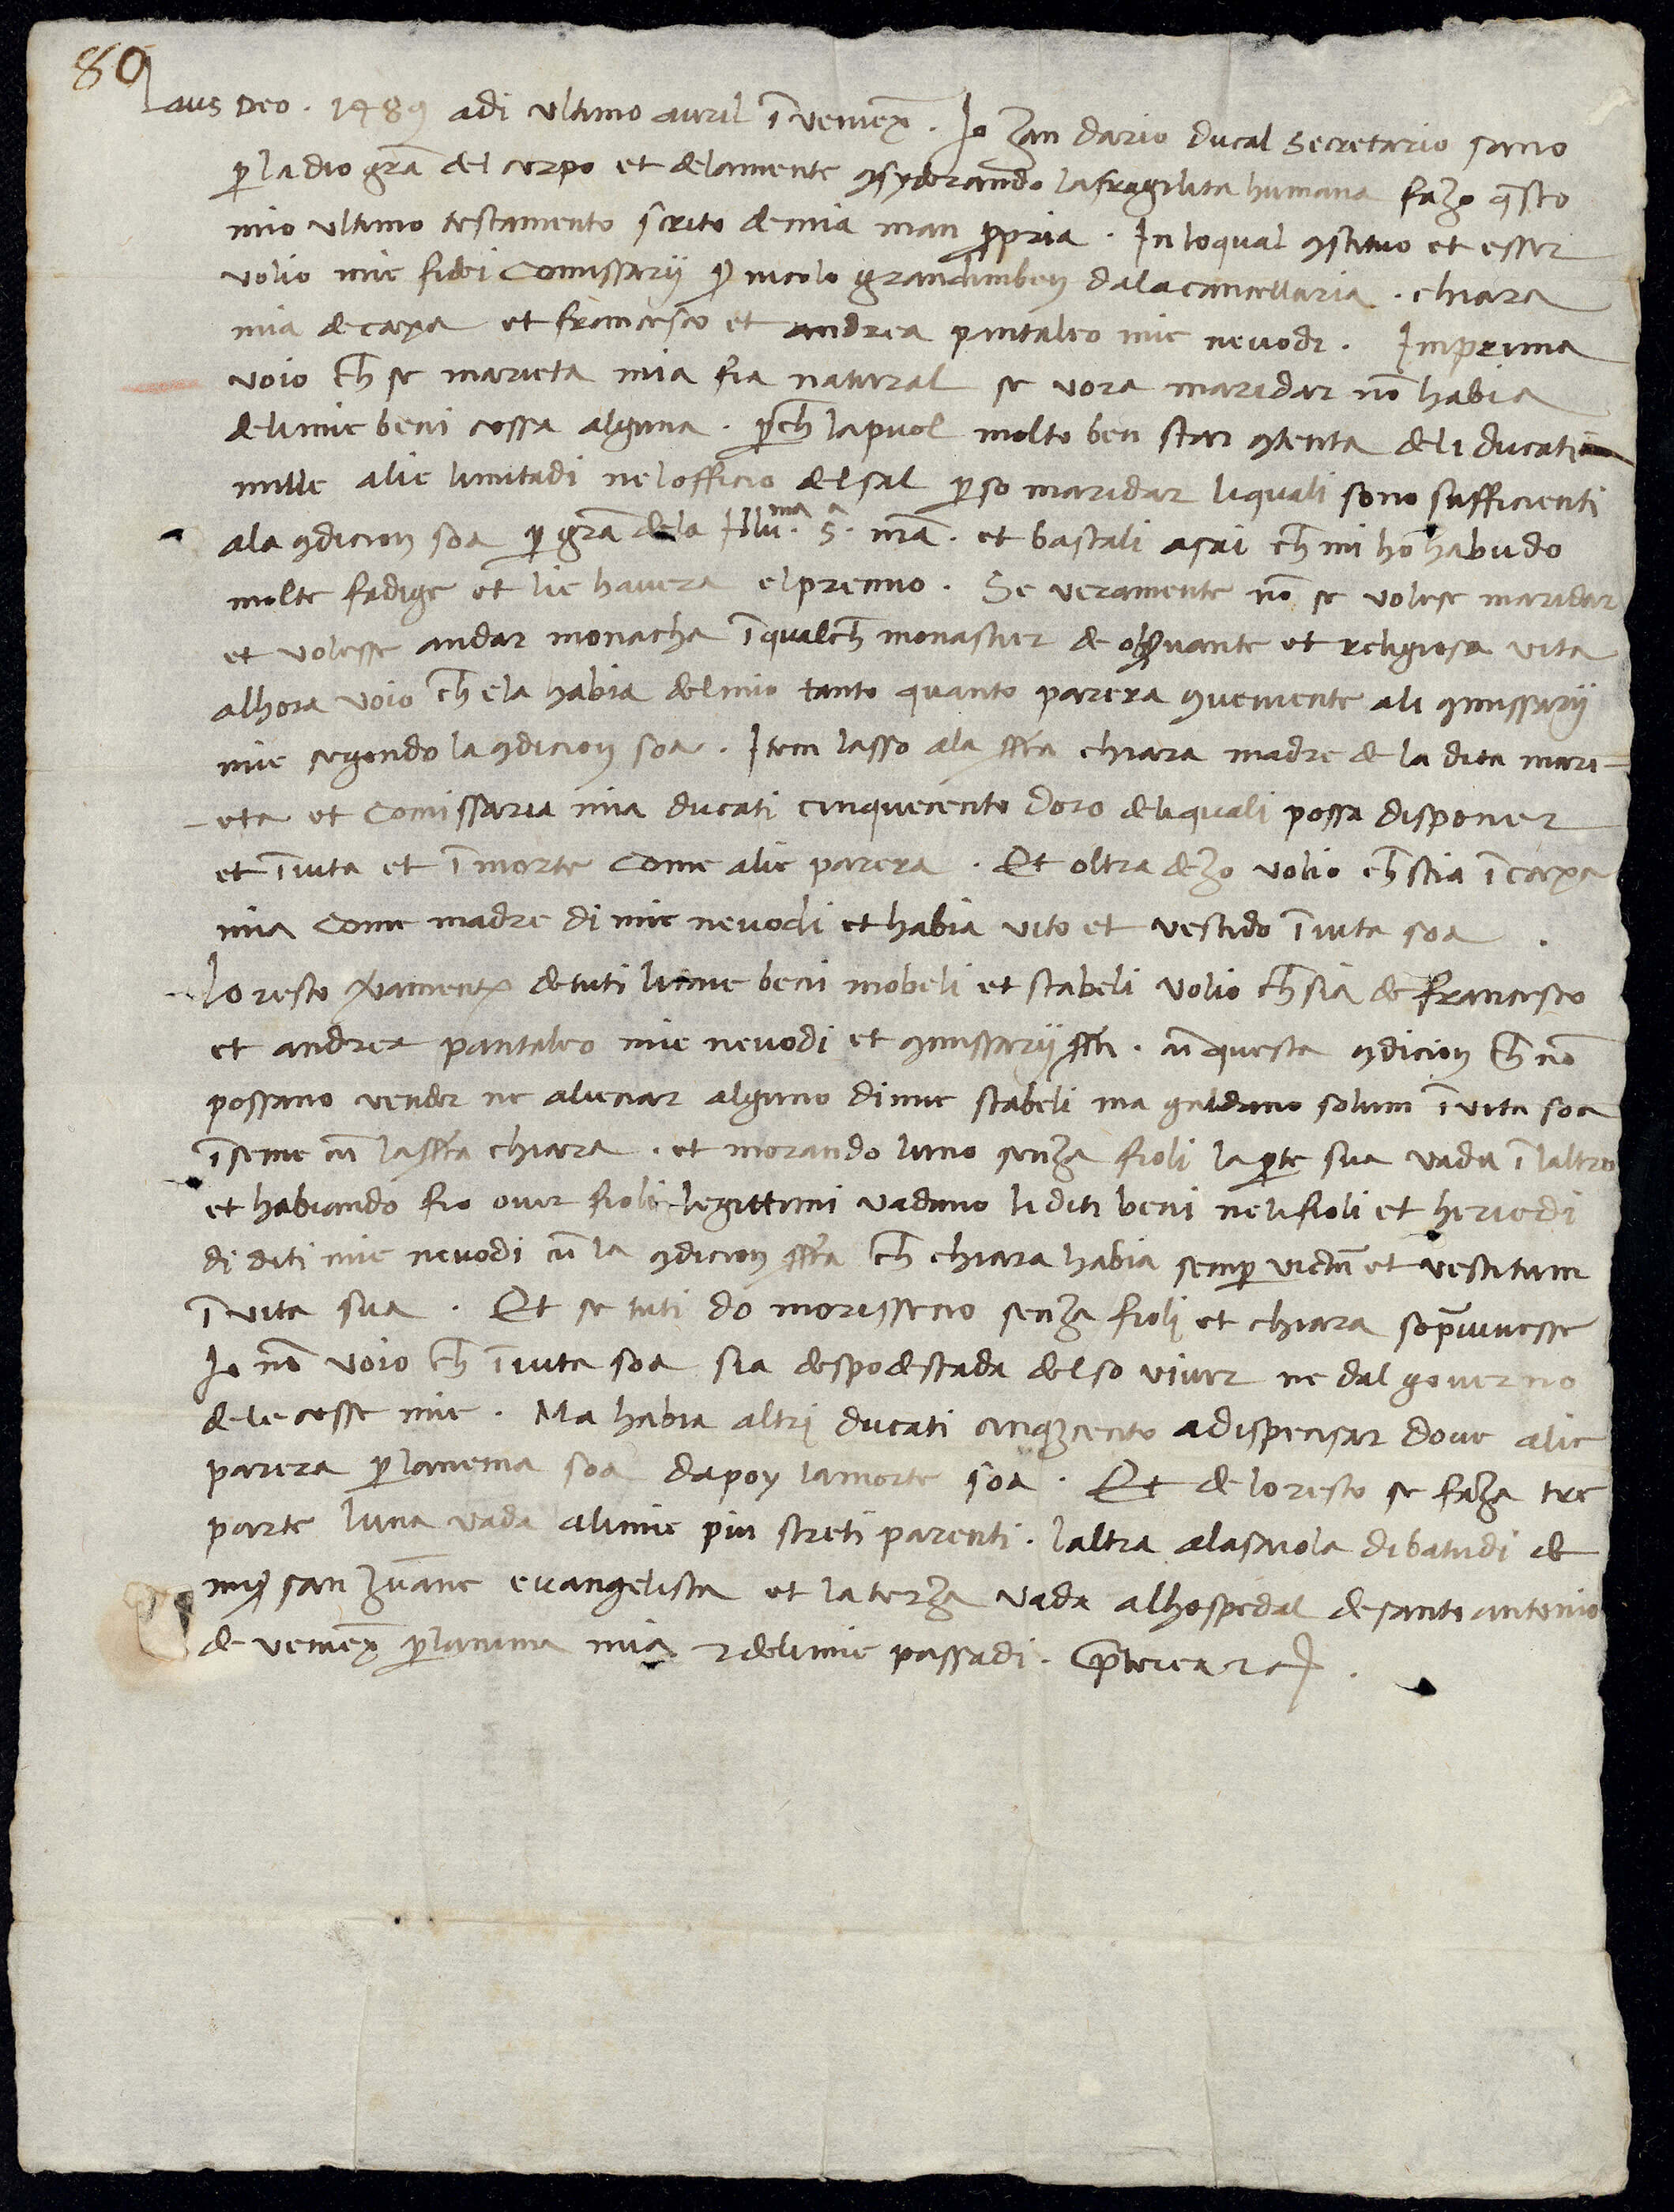 80
Laus Deo. 1489 adi ultimo auril ī veniexᵃ. Io Zan dario ducal Secretario sano
ꝑ la dio grā del corpo et dela mente ꝯsyderando la fragilita humana fazo q̄sto
mio ultimo testamento scrito de mia man ꝓpria. In loqual ꝯstituo et esser
volio mie fidei Comissarij nicolo grandinben dala cancellaria. chiara
mia de caxa et francesco et andrea pantaleo mie nevodi. Imprima
voio ch̄ se marieta mia fia natural se vora maridar nō habia
deli mie beni cossa alguna. ꝑch̄ la puol molto ben star ꝯtenta deli ducati
mille a lie limitadi nel officio del sal ꝑ so maridar li quali sono sufficienti
ala ꝯdicion soa ꝑ grā dela Illu.ᵐᵃ S.ᵃ nrā. et bastali asai ch̄ mi ho habudo
molte fadige et lie havera el premio. Se veramente nō se volese maridar
et volesse andar monacha ī qualch̄ monastier de obẜuante et religiosa vita
alhora voio ch̄ ela habia del mio tanto quanto parera ꝯveniente ali ꝯmissarij
mie segondo la ꝯdicion soa. Item lasso ala ss̄ta chiara madre de la dita mari=
-eta et Comissaria mia ducati cinquecento doro deli quali possa disponer
et ī vita et ī morte come a lie parera. Et oltra de zo volio ch̄ stia ī caxa
mia come madre di mie nevodi et habia vito et vestido ī vita soa.
Lo resto v̄amente de tuti li mie beni mobeli et stabeli volio ch̄ sia de francesco
et andrea pantaleo mie nevodi et ꝯmissarij ss̄ti. cū questa ꝯdicion ch̄ nō
possano vender ne alienar alguno di mie stabeli ma galdano solum ī vita soa
īseme cū la ss̄ta chiara. et morando luno senza fioli la ꝑte sua vada ī laltro
et habiando fio over fioli legittimi vadano li diti beni neli fioli et heriedi
di diti mie nevodi cū la ꝯdicion ss̄ta ch̄ chiara habia semꝑ victū et vestitum
ī vita sua. Et se tuti do morisseno senza fioli et chiara sop̄vivesse
Io nō voio ch̄ ī vita soa sia despodestada del so viver ne dal governo
dele cosse mie. Ma habia altri ducati cinqꝫcento a dispensar dove a lie
parera ꝑ lanema soa dapoy la morte soa. Et de lo resto se faza tre
parte luna vada ali mie piu streti parenti. laltra ala scuola di batudi de
mis̄ san zuane evangelista et la terza vada al hospedal de santo antonio
de veniexᵃ ꝑ lanima mia ⁊ deli mie passadi. p̄terea ⁊c.